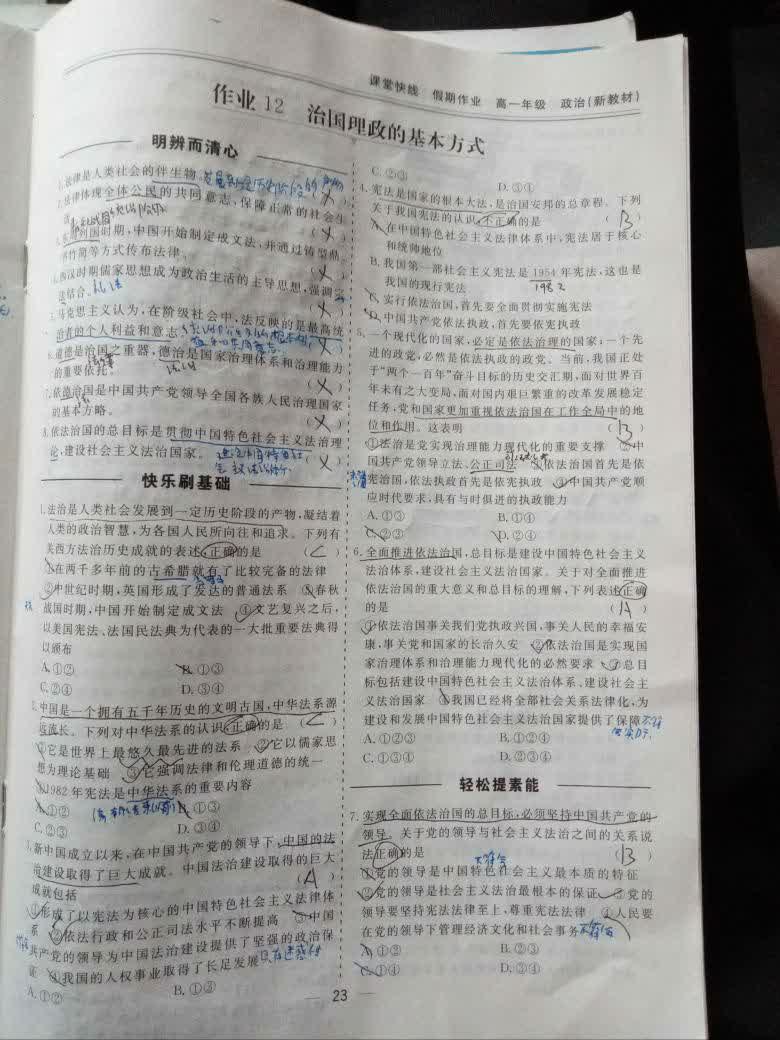 课堂快线 假期作业 高一年级 政治(新教材)
作业12 治国理政的基本方式
明辨而清心
1.法律是人类社会的伴生物。
2.法律体现全体公民的共同意志,保障正常的社会生
国时期,中国开始制定成文法,并通过铸型鼎
书竹简等方式传布法律。 (X)
4.西汉时期儒家思想成为政治生活的主导思想,强调
法结合。礼法 (X)
5.马克思主义认为,在阶级社会中,法反映的是最高统
治者的个人利益和意志 (X)
6.道德是治国之重器,德治是国家治理体系和治理能力
的重要依托。法治 (X)
7.依德治国是中国共产党领导全国各族人民治理国家
的基本方略。 (X)
8.依法治国的总目标是贯彻中国特色社会主义法治理
论,建设社会主义法治国家。 (X)
快乐刷基础
1.法治是人类社会发展到一定历史阶段的产物,凝结着
人类的政治智慧,为各国人民所向往和追求。下列有
关西方法治历史成就的表述,正确的是 (C)
①在两千多年前的古希腊就有了比较完备的法律
②中世纪时期,英国形成了发达的普通法系 ③春秋
战国时期,中国开始制定成文法 ④文艺复兴之后,
以美国宪法、法国民法典为代表的一大批重要法典得
以颁布
A.①② B.①③
C.②④ D.③④
2.中国是一个拥有五千年历史的文明古国,中华法系源
远流长。下列对中华法系的认识,正确的是 (C)
①它是世界上最悠久最先进的法系 ②它以儒家思
想为理论基础 ③它强调法律和伦理道德的统一
④1982年宪法是中华法系的重要内容
A.①② B.①③
C.②③ D.③④
3.新中国成立以来,在中国共产党的领导下,中国的法
治建设取得了巨大成就。中国法治建设取得的巨大
成就包括 (A)
①形成了以宪法为核心的中国特色社会主义法律体
系 ②依法行政和公正司法水平不断提高 ③中国
共产党的领导为中国法治建设提供了坚强的政治保
证 ④我国的人权事业取得了长足发展
A.①② B.①③
C.②③ D.③④
4.宪法是国家的根本大法,是治国安邦的总章程。下列
关于我国宪法的认识,不正确的是 (B)
A.在中国特色社会主义法律体系中,宪法居于核心
和统帅地位
B.我国第一部社会主义宪法是1954年宪法,这也是
我国的现行宪法 1982
C.实行依法治国,首先要全面贯彻实施宪法
D.中国共产党依法执政,首先要依宪执政
5.一个现代化的国家,必定是依法治理的国家;一个先
进的政党,必然是依法执政的政党。当前,我国正处
于“两个一百年”奋斗目标的历史交汇期,面对世界百
年未有之大变局,面对国内艰巨繁重的改革发展稳定
任务,党和国家更加重视依法治国在工作全局中的地
位和作用。这表明 (B)
①法治是党实现治理能力现代化的重要支撑 ②中
国共产党领导立法、公正司法 ③依法治国首先是依
宪治国,依法执政首先是依宪执政 ④中国共产党顺
应时代要求,具有与时俱进的执政能力
A.①③ B.①④
C.②③ D.②④
6.全面推进依法治国,总目标是建设中国特色社会主义
法治体系,建设社会主义法治国家。关于对全面推进
依法治国的重大意义和总目标的理解,下列表述正确
的是 (A)
①依法治国事关我们党执政兴国,事关人民的幸福安
康,事关党和国家的长治久安 ②依法治国是实现国
家治理体系和治理能力现代化的必然要求 ③总目
标包括建设中国特色社会主义法治体系、建设社会主
义法治国家 ④我国已经将全部社会关系法律化,为
建设和发展中国特色社会主义法治国家提供了保障
A.①②③ B.①②④
C.①③④ D.②③④
轻松提素能
7.实现全面依法治国的总目标,必须坚持中国共产党的
领导。关于党的领导与社会主义法治之间的关系说
法正确的是 (B)
①党的领导是中国特色社会主义最本质的特征
②党的领导是社会主义法治最根本的保证 ③党的
领导要坚持宪法法律至上,尊重宪法法律 ④人民要
在党的领导下管理经济文化和社会事务
A.①② B.②③
C.①④ D.③④
23